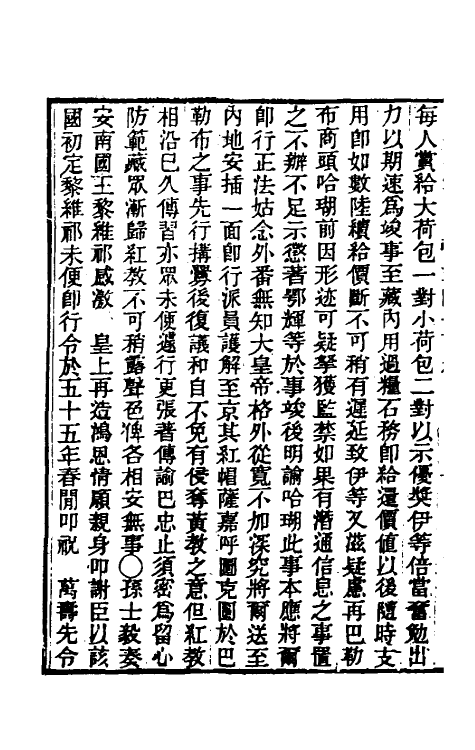 每人賞給大荷包一對小荷包二對以示優奬伊等倍當奮勉出
力以期速爲竣事至藏內用過糧石務卽給還價値以後隨時支
用卽如數陸續給價斷不可稍有遲延致伊等又滋疑慮再巴勒
布商頭哈瑚前因形迹可疑拏獲監禁如果有潛通信息之事置
之不辦不足示懲著鄂輝等於事竣後明諭哈瑚此事本應將爾
卽行正法姑念外番無知大皇帝格外從寬不加深究將爾送至
內地安插一面卽行派員護解至京其紅帽薩嘉呼圖克圖於巴
勒布之事先行搆釁後復議和自不免有侵奪黃敎之意但紅敎
相沿已久傳習亦眾未便遽行更張著傳諭巴忠止須密爲留心
防範藏眾漸歸紅敎不可稍露聲色俾各相安無事〇孫士毅奏
安南國王黎維祁感激 皇上再造鴻恩情願親身叩謝臣以該
國初定黎維祁未便卽行令於五十五年春閒叩祝 萬壽先令